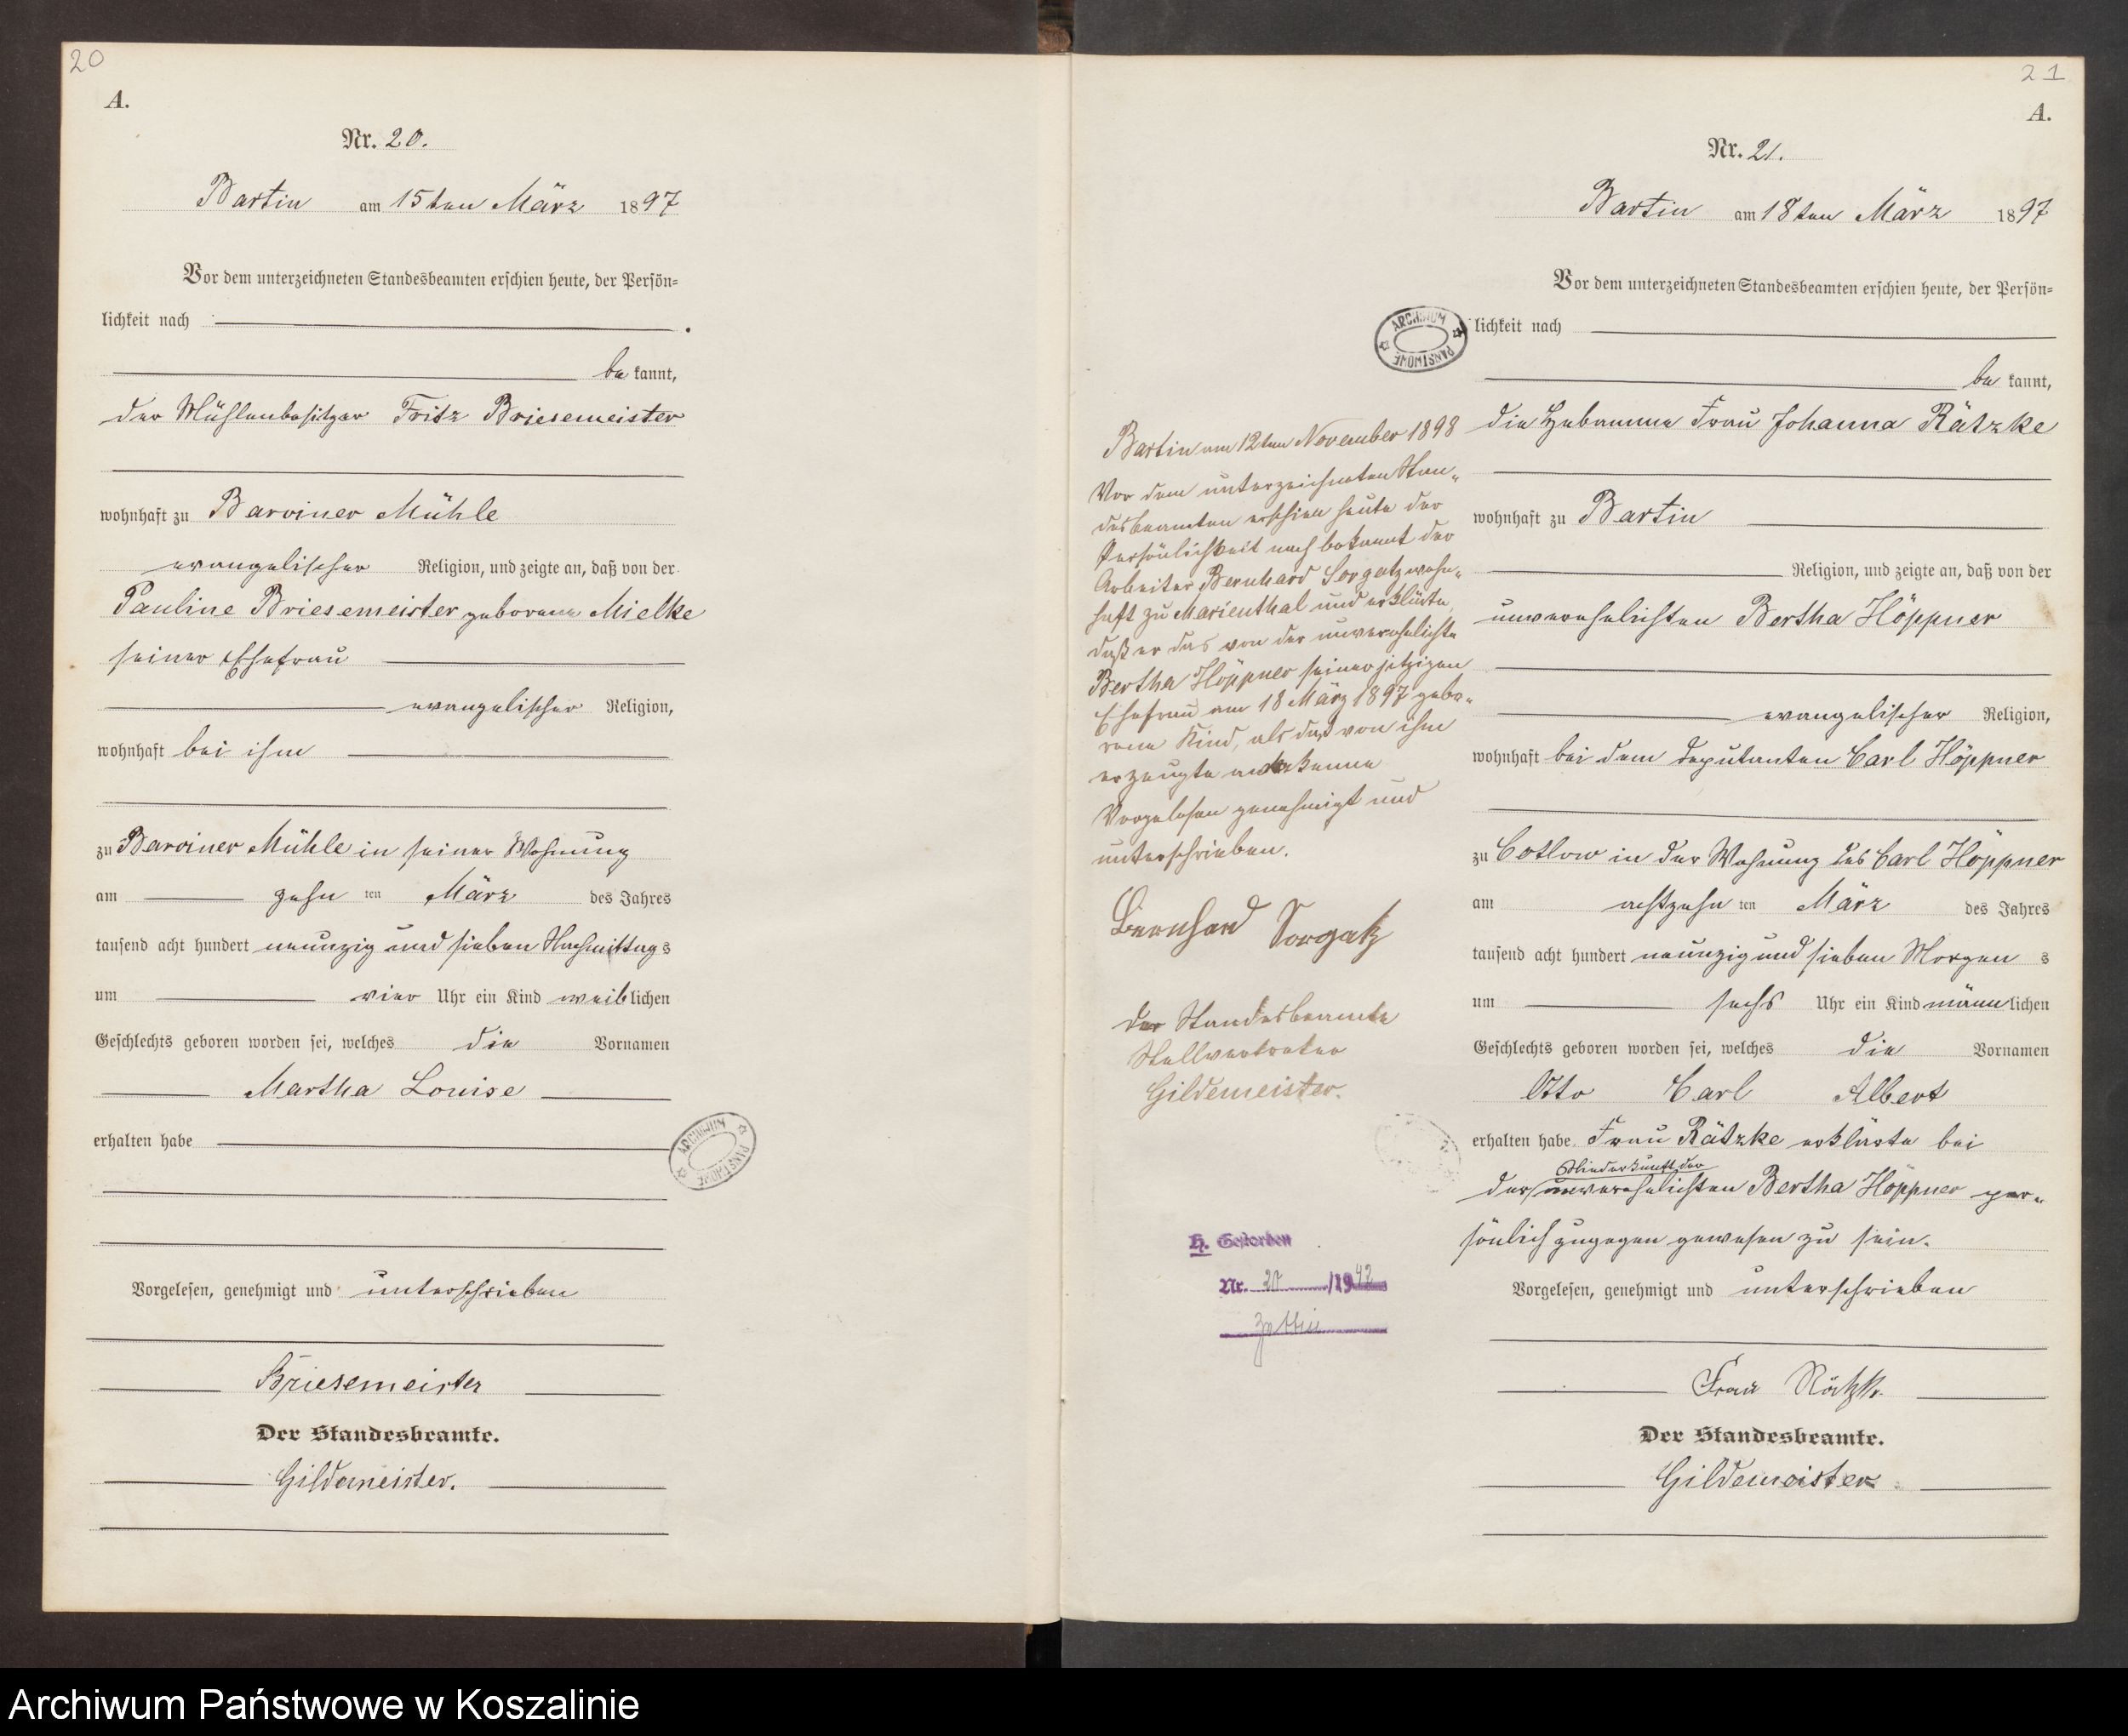 20
A.
Nr. 20.
Bartin am 15ten März 1897
Vor dem unterzeichneten Standesbeamten erschien heute, der Persön-
lichkeit nach
be kannt,
der Mühlenbesitzer Fritz Briesemeister
wohnhaft zu Barviner Mühle
evangelischer Religion, und zeigte an, daß von der
Pauline Briesemeister geborene Mielke
seiner Ehefrau
evangelischer Religion,
wohnhaft bei ihm
zu Barviner Mühle in seiner Wohnung
am zehn ten März des Jahres
tausend acht hundert neunzig und sieben Nachmittags
um vier Uhr ein Kind weiblichen
Geschlechts geboren worden sei, welches die Vornamen
Martha Louise
erhalten habe
Vorgelesen, genehmigt und unterschrieben
Briesemeister
Der Standesbeamte.
Gildemeister.
ARCHIWUM PAŃSTWOWE
21
A.
Nr. 21.
Bartin am 18ten März 1897
Vor dem unterzeichneten Standesbeamten erschien heute, der Persön-
lichkeit nach
be kannt,
die Hebamme Frau Johanna Rätzke
wohnhaft zu Bartin
Religion, und zeigte an, daß von der
unverehelichten Bertha Höppner
evangelischer Religion,
wohnhaft bei dem Deputanten Carl Höppner
zu Cotlow in der Wohnung des Carl Höppner
am achtzehn ten März des Jahres
tausend acht hundert neunzig und sieben Morgens
um sechs Uhr ein Kind männlichen
Geschlechts geboren worden sei, welches die Vornamen
Otto Carl Albert
erhalten habe. Frau Rätzke erklärte bei
Niederkunft der
der unverehelichten Bertha Höppner per-
sönlich zugegen gewesen zu sein.
Vorgelesen, genehmigt und unterschrieben
Frau Rätzke
Der Standesbeamte.
Gildemeister
ARCHIWUM PAŃSTWOWE
Bartin am 12ten November 1898
Vor dem unterzeichneten Stan-
desbeamten erschien heute der
Persönlichkeit nach bekannt der
Arbeiter Bernhard Sorgatz wohn-
haft zu Marienthal und erklärte,
daß er das von der unverehelichte
Bertha Höppner seiner jetzigen
Ehefrau am 18 März 1897 gebo-
rene Kind, als das von ihm
erzeugte anerkenne
Vorgelesen genehmigt und
unterschrieben.
Bernhard Sorgatz
Der Standesbeamte
Stellvertreter
Gildemeister.
H. Gestorben
Nr. 20 /1942
Archiwum Państwowe w Koszalinie